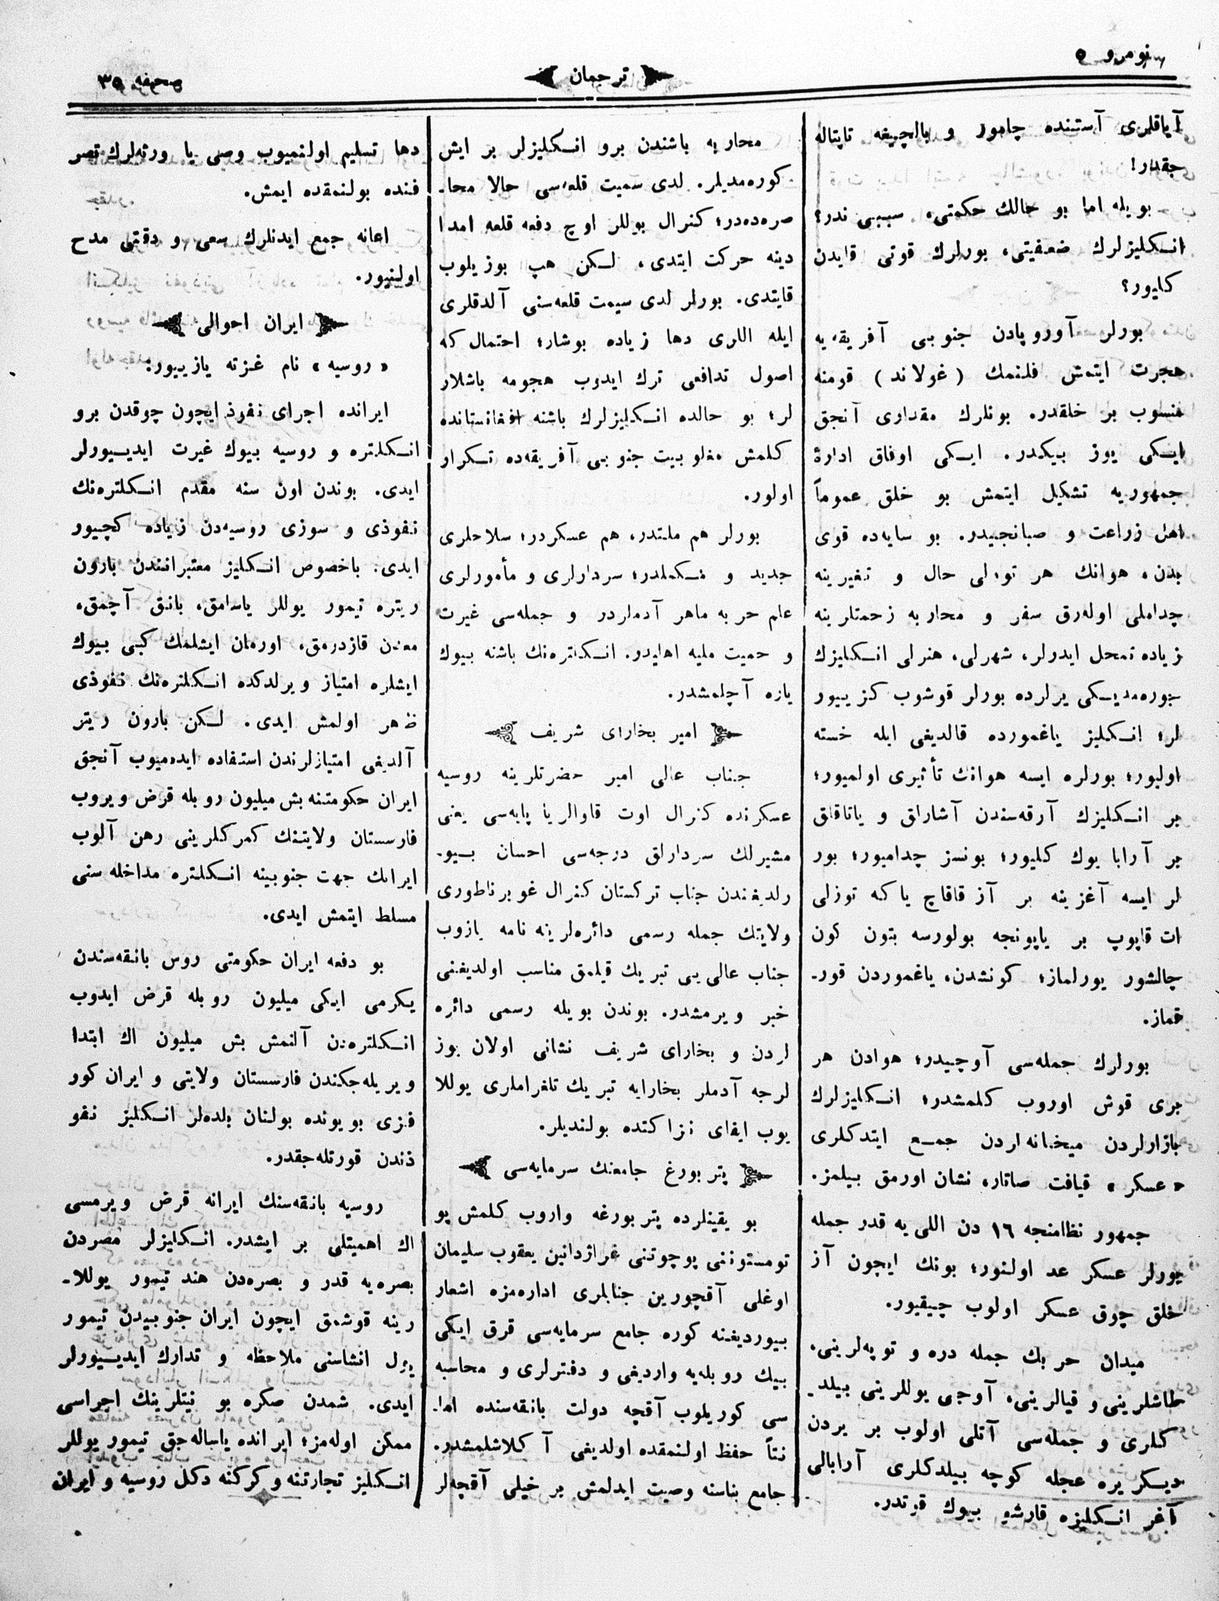 نومرو ٥
ترجمان
صحيفه ٣٥
آياقلرى آستنده چامور و بالچيغه تاپتاله
جقدر!
بويله اما بو حالك حكمتى، سببى ندر؟
انكليزلرك ضعفيتى، بورلرك قوتى قايدن
كليور؟
بورلر آوروپادن جنوبى آفريقەيه
هجرت ايتمش فلمنك (غولاند) قومنه
منسوب بر خلقدر. بونلرك مقدارى آنجق
ايكى يوز بيكدر. ايكى اوفاق ادارۀ
جمهوريه تشكيل ايتمش بو خلق عموماً
اهل زراعت و صبانجيدر. بو سايەده قوى
بدن، هوانك هر تورلى حال و تغيرينه
چداملى اولەرق سفر و محاربه زحمتلرينه
زياده تحمل ايدرلر، شهرلى، هنرلى انكليزك
يورەمديكى يرلرده بورلر قوشوب كزييور
لر؛ انكليز ياغمورده قالديغى ايله خسته
اوليور؛ بورلره ايسه هوانك تأثيرى اولميور؛
بر انكليزك آرقەسندن آشاراق و ياتاقلق
بر آرابا يوك كليور؛ بونسز چداميور؛ بور
لر ايسه آغزينه بر آز قاقاچ ياكه توزلى
ات قاپوپ بر ياپونجه بولورسه بتون كون
چالشور يورلماز؛ كونشدن، ياغموردن قور-
قماز.
بورلرك جملەسى آوجيدر؛ هوادن هر
برى قوش اوروب كلمشدر؛ انكليزلرك
بازارلردن ميخانەلردن جمع ايتدكلرى
«عسكر» قيافت صاتار، نشان اورمق بيلمز.
جمهور نظامنجه ١٦ دن اللى يه قدر جمله
بورلر عسكر عد اولنور؛ بونك ايچون آز
خلق چوق عسكر اولوب چيقيور.
ميدان حربك جمله دره و توپەلرينى،
طاشلرينى و قيالرينى، آوجى يوللرينى بيلد-
كلرى و جملەسى آتلى اولوب بر يردن
ديكر يره عجله كوچه بيلدكلرى آرابالى
آغر انكليزه قارشو بيوك قوتدر.
محاربه باشندن برو انكليزلر بر ايش
كورەمديلر. لدى سميت قلعەسى حالا محا-
صرەدەدر؛ كنرال بوللر اوچ دفعه قلعه امدا
دينه حركت ايتدى، لكن هپ بوزيلوب
قايتدى. بورلر لدى سيمت قلعەسنى آلدقلرى
ايله اللرى دها زياده بوشار؛ احتمال كه
اصول تدافعى ترك ايدوب هجومه باشلار
لر؛ بو حالده انكليزلرك باشنه افغانستانده
كلمش مغلوبيت جنوبى آفريقەده تكرار
اولور.
بورلر هم ملتدر، هم عسكردر؛ سلاحلرى
جديد و مكملدر؛ سردارلرى و مأمورلرى
علم حربه ماهر آدملردر و جملەسى غيرت
و حميت مليه اهليدر. انكلترەنك باشنه بيوك
يازه آچلمشدر.
امير بخاراى شريف
جناب عالى امير حضرتلرينه روسيه
عسكرنده كنرال اوت قاوالريا پايەسى يعنى
مشيرلك سردارلق درجەسى احسان بيو-
رلديغندن جناب تركستان كنرال غوبرناطورى
ولايتك جمله رسمى دائرەلرينه نامه يازوب
جناب عالى يى تبريك قيلمق مناسب اولديغنى
خبر ويرمشدر. بوندن بويله رسمى دائره
لردن و بخاراى شريف نشانى اولان يوز
لرجه آدملر بخارايه تبريك تلغراملرى يوللا
يوب ايفاى نزاكتده بولنديلر.
پتربورغ جامعنك سرمايەسى
بو يقينلرده پتربورغه واروب كلمش پو
تومستوننى پوچوتنى غراژدانين يعقوب سليمان
اوغلى آقچورين جنابلرى ادارەمزه اشعار
بيورديغنه كوره جامع سرمايەسى قرق ايكى
بيك روبلەيه وارديغى و دفترلرى و محاسبه
سى كوريلوب آقچه دولت بانقەسنده اما-
نتاً حفظ اولنمقده اولديغى آكلاشلمشدر.
جامع بناسنه وصيت ايدلمش بر خيلى آقچەلر
دها تسليم اولنميوب وصى يا ورثەلرك تصر
فنده بولنمقده ايمش.
اعانه جمع ايدنلرك سعى و دقتى مدح
اولنيور.
ايران احوالى
«روسيه» نام غزته يازييور:
ايرانده اجراى نفوذ ايچون چوقدن برو
انكلتره و روسيه بيوك غيرت ايدييورلر
ايدى. بوندن اون سنه مقدم انكلترەنك
نفوذى و سوزى روسيەدن زياده كچيور
ايدى. باخصوص انكليز معتبرانندن بارون
ريتره تيمور يوللر ياسامق، بانق آچمق،
معدن قازدرمق، اورمان ايشلمك كبى بيوك
ايشلره امتياز ويرلدكده انكلترەنك نفوذى
ظهر اولمش ايدى. لكن بارون ريتر
آلديغى امتيازلرندن استفاده ايدەميوب آنجق
ايران حكومتنه بش ميليون روبله قرض ويروب
فارسستان ولايتنك كمركلرينى رهن آلوب
ايرانك جهت جنوبينه انكلتره مداخلەسنى
مسلط ايتمش ايدى.
بو دفعه ايران حكومتى روس بانقەسندن
يكرمى ايكى ميليون روبله قرض ايدوب
انكلترەدن آلنمش بش ميليون اك ابتدا
ويريلەجكندن فارسستان ولايتى و ايران كور
فزى بويونده بولنان بلدەلر انكليز نفو
ذندن قورتلەجقدر.
روسيه بانقەسنك ايرانه قرض ويرمسى
اك اهميتلى بر ايشدر. انكليزلر مصردن
بصرەيه قدر و بصرەدن هند تيمور يوللا-
رينه قوشمق ايچون ايران جنوبيدن تيمور
يول انشاسنى ملاحظه و تدارك ايدييورلر
ايدى. شمدن صكره بو نيتلرينك اجراسى
ممكن اولەمز؛ ايرانده ياسالەجق تيمور يوللر
انكليز تجارتنه و كركنه دكل روسيه و ايران